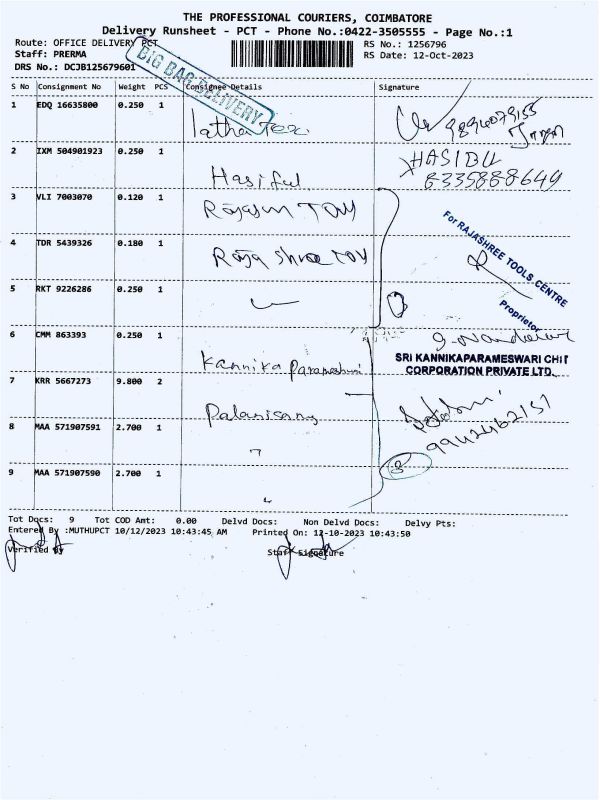 THE PROFESSIONAL COURIERS, COIMBATORE
Delivery Runsheet - PCT - Phone No.:0422-3505555 - Page No.:1
Route: OFFICE DELIVERY PCT
RS No.: 1256796
Staff: PRERMA
RS Date: 12-Oct-2023
DRS No.: DCJB125679601
BIG BAG DELIVERY
S No Consignment No Weight PCS Consignee Details Signature
1 EDQ 16635800 0.250 1
2 IXM 504901923 0.250 1 Hasiful HASIBU
8335888649
3 VLI 7003070 0.120 1 TOY
4 TDR 5439326 0.180 1 Raja Shree TOY
For RAJASHREE TOOLS CENTRE
Proprietor
5 RKT 9226286 0.250 1
6 CMM 863393 0.250 1 Kannika Parameshwari
SRI KANNIKAPARAMESWARI CHIT
CORPORATION PRIVATE LTD.
7 KRR 5667273 9.800 2 Palanisamy
8 MAA 571907591 2.700 1
9 MAA 571907590 2.700 1
Tot Docs: 9 Tot COD Amt: 0.00 Delvd Docs: Non Delvd Docs: Delvy Pts:
Entered By :MUTHUPCT 10/12/2023 10:43:45 AM Printed On: 12-10-2023 10:43:50
Verified By Staff Signature